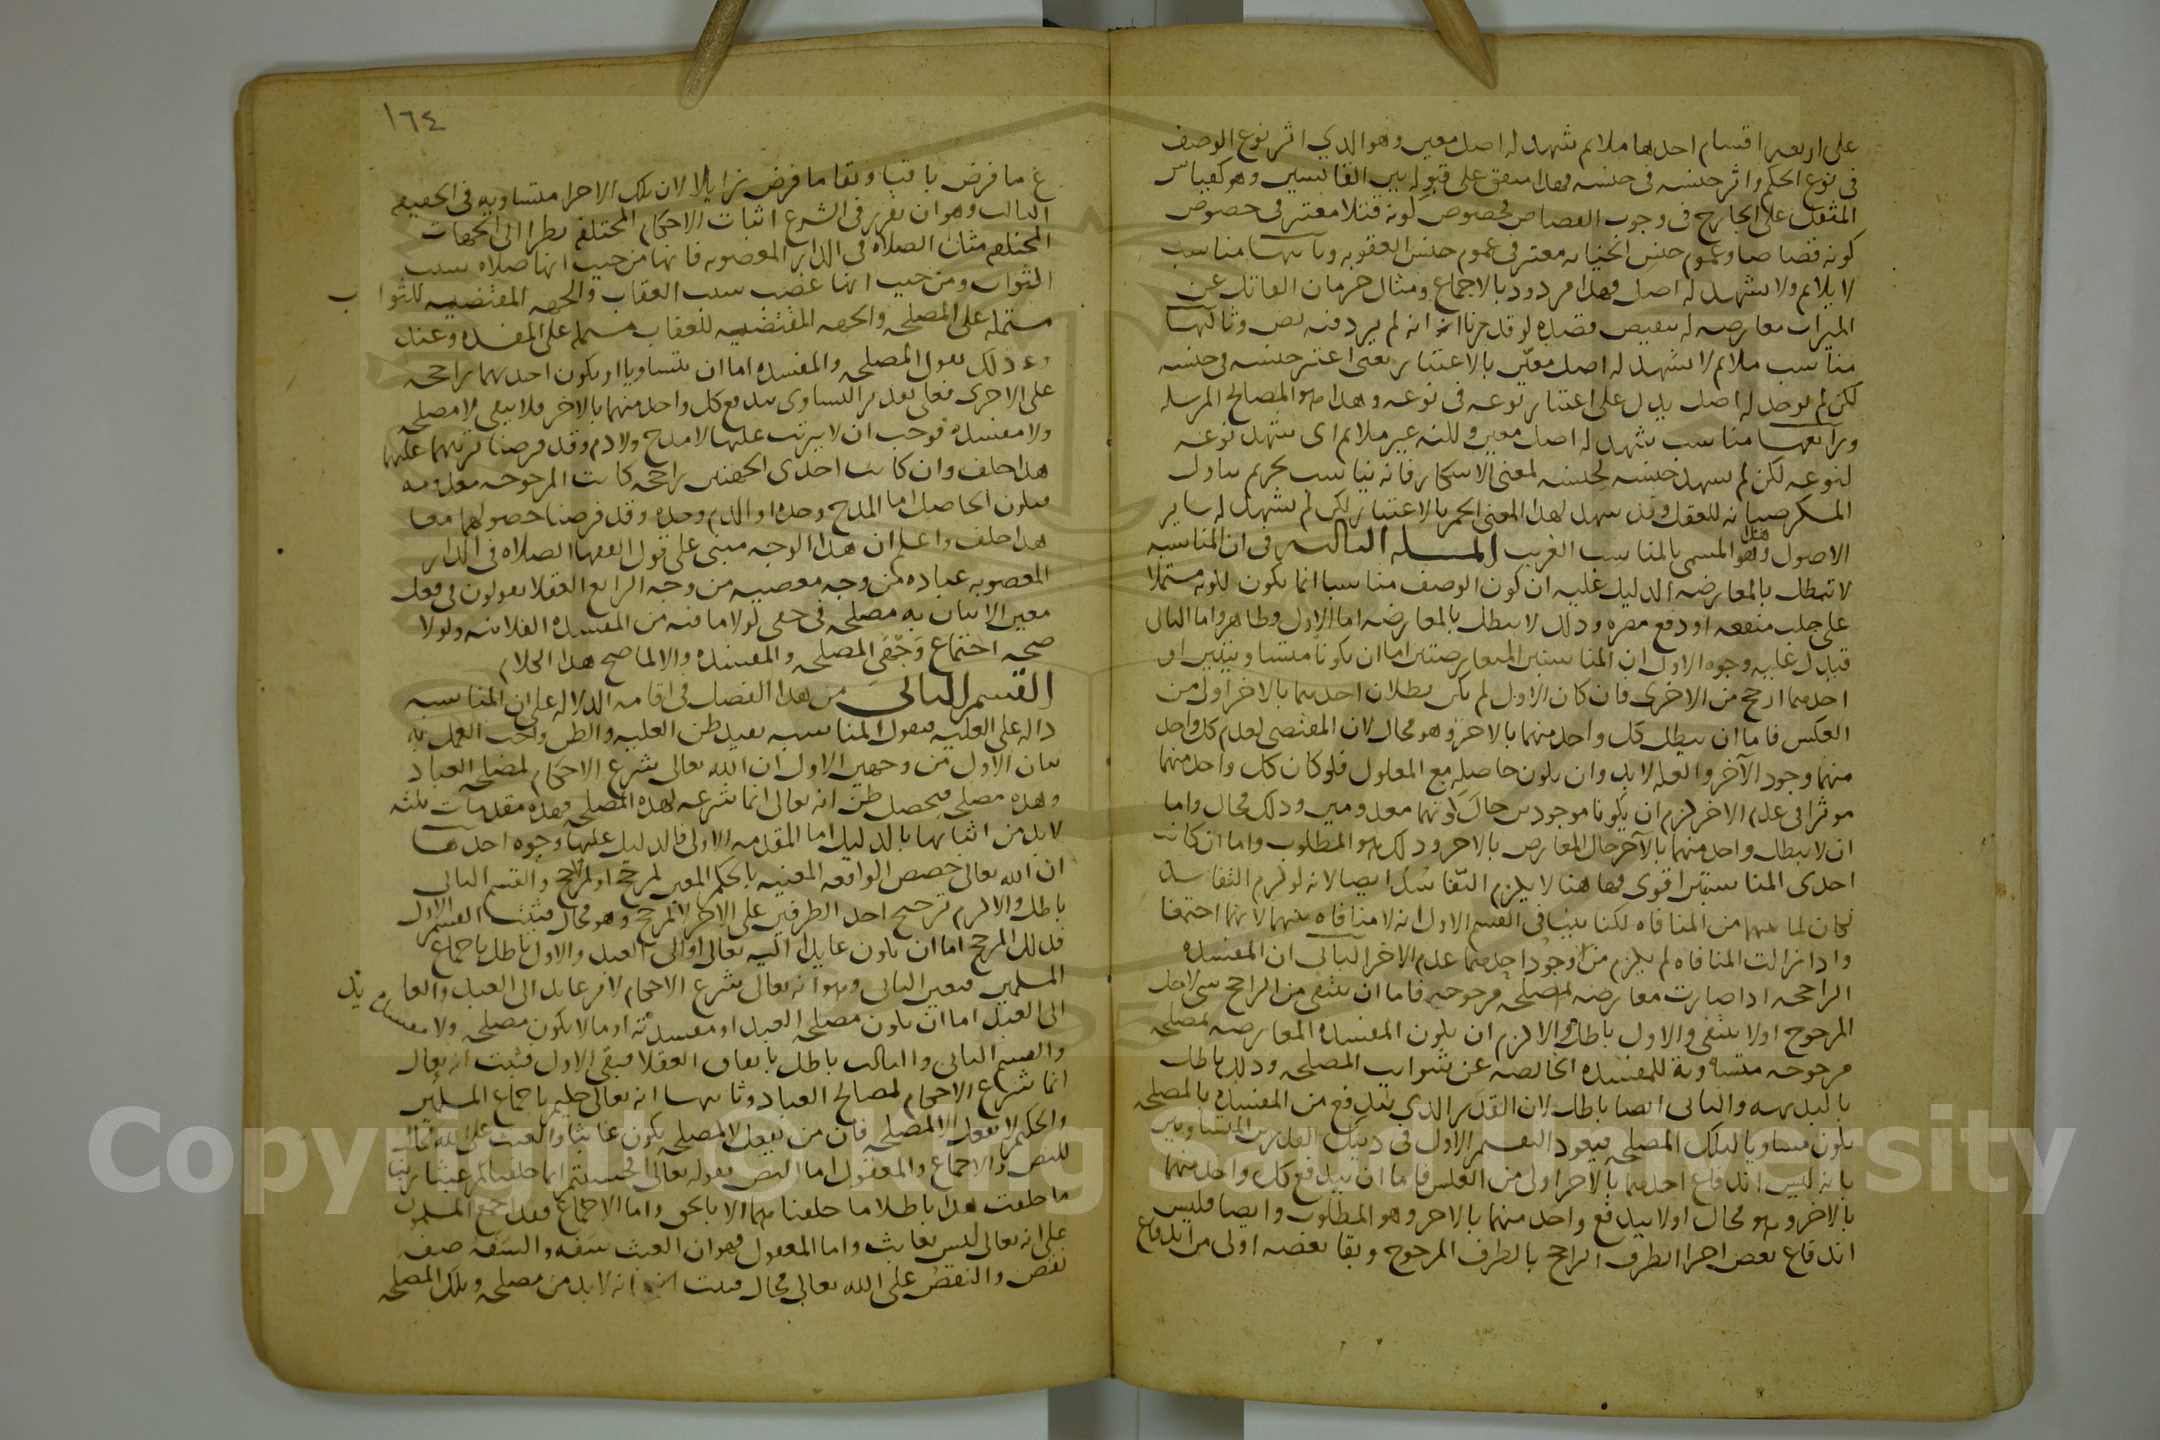 على اربعه اقسام احدها ملايم شهد له اصل معين وهو الذي اثر نوع الوصف
في نوع الحكم واثر جنسه في جنسه فهذا متفق على قبوله بين القائسين وهو كقياس
المثقل على الجارح في وجوب القصاص فخصوص كونه قتلا معتبر في خصوص
كونه قصاصا وعموم جنس الجنايه معتبر في عموم جنس العقوبه وثانيها مناسب
لا يلايم ولا شهد له اصل فهذا مردود بالاجماع ومثال حرمان القاتل عن
الميراث معارضه له بنقيض قصده لو قدرنا انه لم يرد فيه نص وثالثها
مناسب ملايم لا شهد له اصل معين بالاعتبار يعني اعتبر جنسه في جنسه
لكن لم يوجد له اصل يدل على اعتبار نوعه في نوعه وهذا هو المصالح المرسله
ورابعها مناسب شهد له اصل معين ولكنه غير ملايم اي شهد نوعه
لنوعه لكن لم يشهد جنسه لجنسه لمعنى الاسكار فانه يناسب تحريم تناول
المسكر صيانه للعقل وقد شهد لهذا المعنى الخمر بالاعتبار لكن لم شهد له ساير
الاصول وهذا هو المسمى بالمناسب الغريب المسله الثالثه في ان المناسبه
لا تبطل بالمعارضه الدليل عليه ان كون الوصف مناسبا انما يكون لكونه مشتملا
على جلب منفعه او دفع مضره وذلك لا يبطل بالمعارضه اما الاول وظاهر واما الثاني
فيدل عليه وجوه الاول ان المناسبتين المتعارضتين اما ان يكونا متساويتين او
احدهما ارجح من الاخرى فان كان الاول لم يكن بطلان احدهما بالاخر اولى من
العكس فاما ان يبطل كل واحد منهما بالاخر وهو محال لان المقتضي لعدم كل واحد
منهما وجود الآخر والعله لابد وان يكون حاصله مع المعلول فلو كان كل واحد منهما
موثرا في عدم الاخر لزم ان يكونا موجودين حال كونهما معدومين وذلك محال واما
ان لا يبطل واحد منهما بالآخر حال المعارض بالاخر وذلك هو المطلوب واما ان كانت
احدى المناسبتين اقوى فهاهنا لا يلزم التفاسد ايضا لانه لو لزم التفاسد
لكان لما بينهما من المنافاه لكنا بينا في القسم الاول انه لا منافاه بينهما لانهما اجتمعا
واذا زالت المنافاه لم يلزم من وجود احدهما عدم الاخر الثاني ان المفسده
الراجحه اذا صارت معارضه لمصلحه مرجوحه فاما ان ينتفي من الراجح شي لاجل
المرجوح او لا ينتفي والاول باطل والا لزم ان يكون المفسده المعارضه لمصلحه
مرجوحه متساويه للمفسده الخالصه عن شوايب المصلحه وذلك باطل
بالبديهه والثاني ايضا باطل لان القدر الذي يندفع من المفسده بالمصلحه
يكون مساويا لتلك المصلحه فيعود التقسيم الاول في ذينك القدرين المتساويين
بانه ليس اندفاع احدهما بالآخر اولى من العكس فاما ان يندفع كل واحد منهما
بالاخر وهو محال او لا يندفع واحد منهما بالاخر وهو المطلوب وايضا فليس
اندفاع بعض اجزا الطرف الراجح بالطرف المرجوح وبقا بعضه اولى من اندفاع
١٦٤
ما فرض باقيا وبقا ما فرض زايلا لان تلك الاجزا متساويه في الحقيقه
الثالث وهو ان تقرر في الشرع اثبات الاحكام المختلفه نظرا الى الجهات
المختلفه مثل الصلاه في الدار المغصوبه فانها من حيث انها صلاه سبب
الثواب ومن حيث انها غصب سبب العقاب والجهه المقتضيه للثواب
مشتمله على المصلحه والجهه المقتضيه للعقاب مشتمله على المفسده وعند
ذلك نقول المصلحه والمفسده اما ان يتساويا او يكون احدهما راجحه
على الاخرى فعلى تقدير التساوي يندفع كل واحد منهما بالآخر فلا يبقى لا مصلحه
ولا مفسده فوجب ان لا يترتب عليها لا مدح ولا ذم وقد فرضنا ترتبهما عليها
هذا خلف وان كانت احدى الجهتين راجحه كانت المرجوحه معدومه
فيكون الحاصل اما المدح وحده او الذم وحده وقد فرضنا حصولهما معا
هذا خلف واعلم ان هذا الوجه مبني على قول الفقها الصلاه في الدار
المغصوبه عباده من وجه معصيه من وجه الرابع العقلا يقولون في فعل
معين الاتيان به مصلحه في حقي لولا ما فيه من المفسده الفلانيه ولولا
صحه اجتماع وجهي المصلحه والمفسده والا لما صح هذا الكلام
القسم الثاني من هذا الفصل في اقامه الدلاله على ان المناسبه
داله على العليه فنقول المناسبه تفيد ظن العليه والظن واجب العمل به
بيان الاول من وجهين الاول ان الله تعالى شرع الاحكام لمصلحه العباد
وهذه مصلحه فيحصل ظن انه تعالى انما شرعه لهذه المصلحه فهذه مقدمات ثلثه
لابد من اثباتها بالدليل اما المقدمه الاولى فالدليل عليها وجوه احدها
ان الله تعالى خصص الواقعه المعينه بالحكم المعين لمرجح او لا لمرجح والقسم الثاني
باطل والا لزم ترجيح احد الطرفين على الاخر لا لمرجح وهو محال فثبت القسم الاول
فذلك المرجح اما ان يكون عايدا اليه تعالى او الى العبد والاول باطل باجماع
المسلمين فتعين الثاني وهو انه تعالى شرع الاحكام لامر عايد الى العبد والعايد
الى العبد اما ان يكون مصلحه العبد او مفسدته او ما لا يكون مصلحه ولا مفسده
والقسم الثاني والثالث باطل باتفاق العقلا فبقي الاول فثبت انه تعالى
انما شرع الاحكام لمصالح العباد وثانيها انه تعالى حكيم باجماع المسلمين
والحكيم لا يفعل الا لمصلحه فان من يفعل لا لمصلحه يكون عابثا والعبث على الله محال
للنص والاجماع والمعقول اما النص فقوله تعالى افحسبتم انما خلقناكم عبثا ربنا
ما خلقت هذا باطلا ما خلقناهما الا بالحق واما الاجماع فقد اجمع المسلمون
على انه تعالى ليس بعابث واما المعقول فهو ان العبث سفه والسفه صفه
نقص والنقص على الله تعالى محال فثبت انه لابد من مصلحه وتلك المصلحه
Copyright © King Saud University